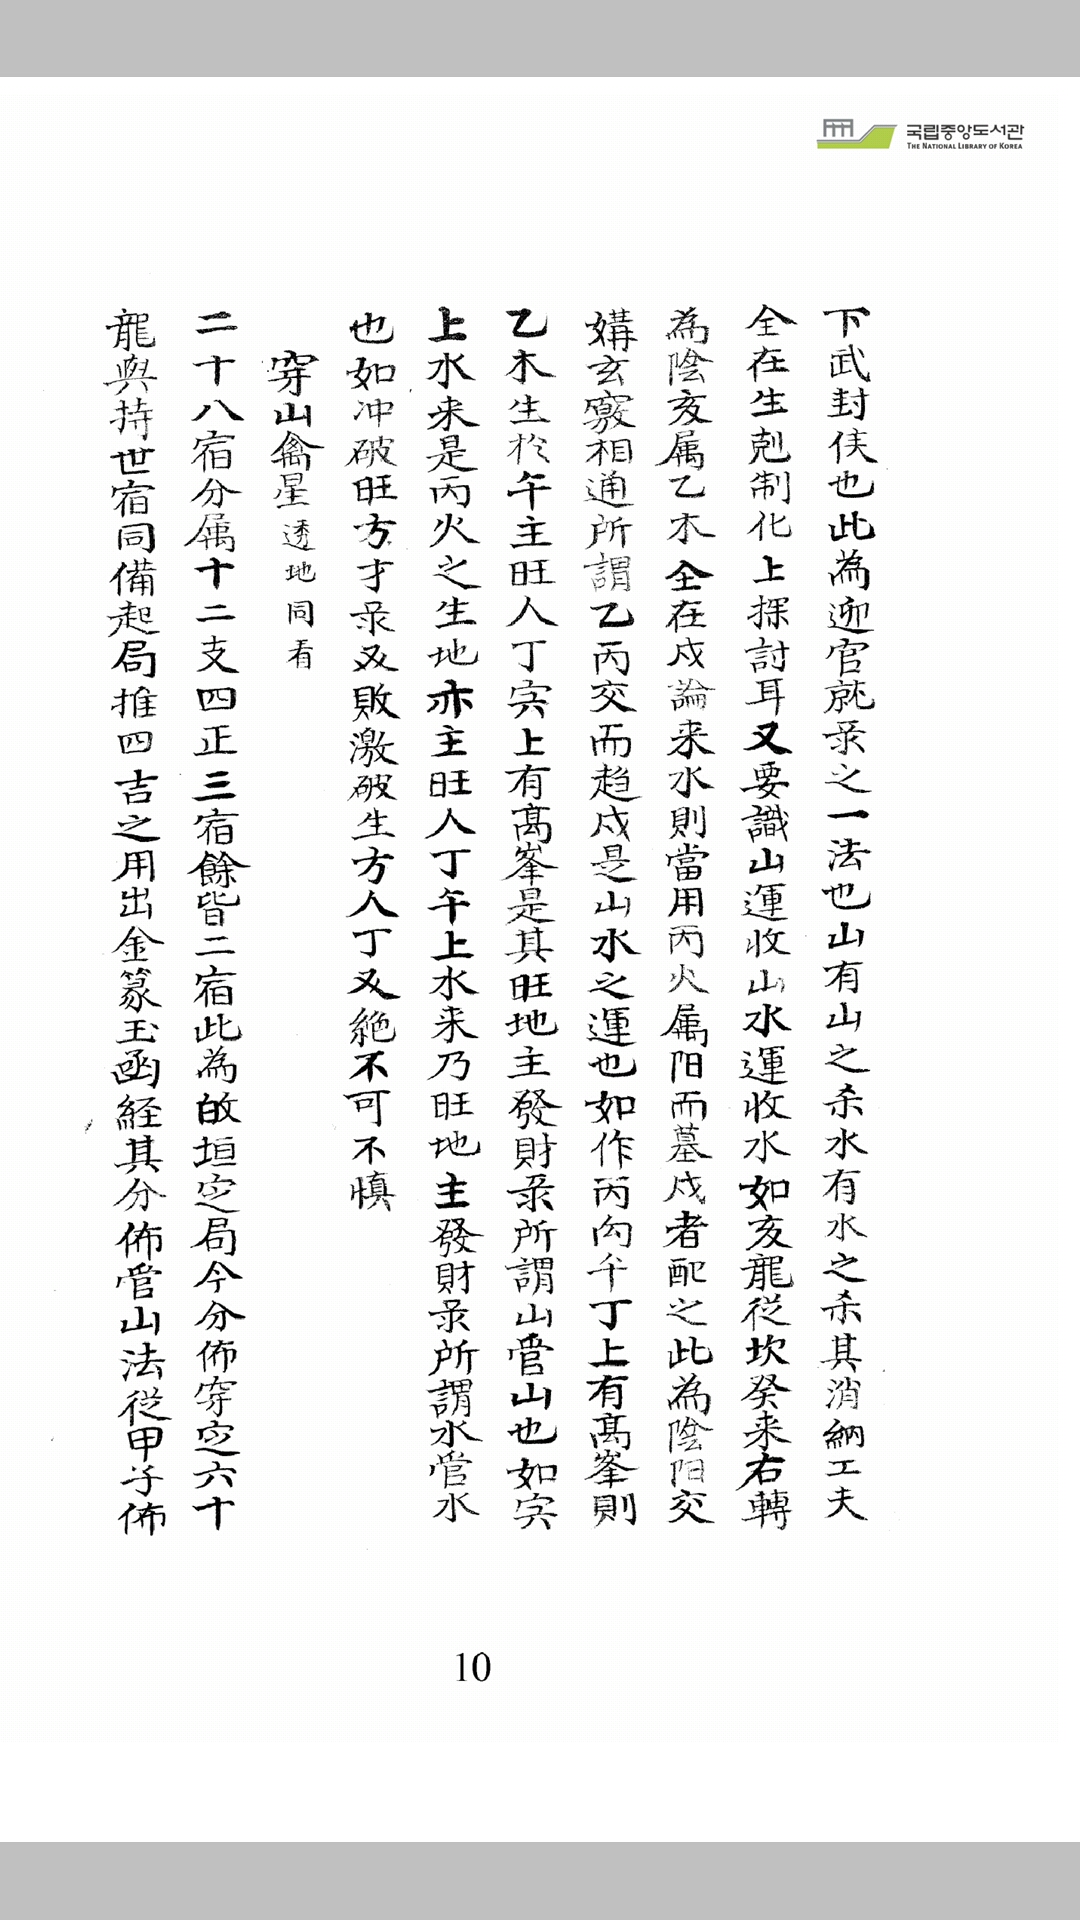 국립중앙도서관
THE NATIONAL LIBRARY OF KOREA
下武封侯也此為迎官就彔之一法也山有山之杀水有水之杀其消納工夫
全在生剋制化上探討耳又要識山運收山水運收水如亥龍從坎癸来右轉
為陰亥属乙木全在戍論来水則當用丙火属阳而墓戍者配之此為陰阳交
媾玄竅相通所謂乙丙交而趋戍是山水之運也如作丙向午丁上有髙峯則
乙木生於午主旺人丁㝎上有髙峯是其旺地主發財彔所謂山管山也如㝎
上水来是丙火之生地亦主旺人丁午上水来乃旺地主發財彔所謂水管水
也如冲破旺方才彔又敗激破生方人丁又絶不可不慎
穿山禽星透地同看
二十八宿分属十二支四正三宿餘皆二宿此為故垣㝎局今分佈穿㝎六十
龍與持世宿同備起局推四吉之用出金篆玉函経其分佈管山法從甲子佈
10